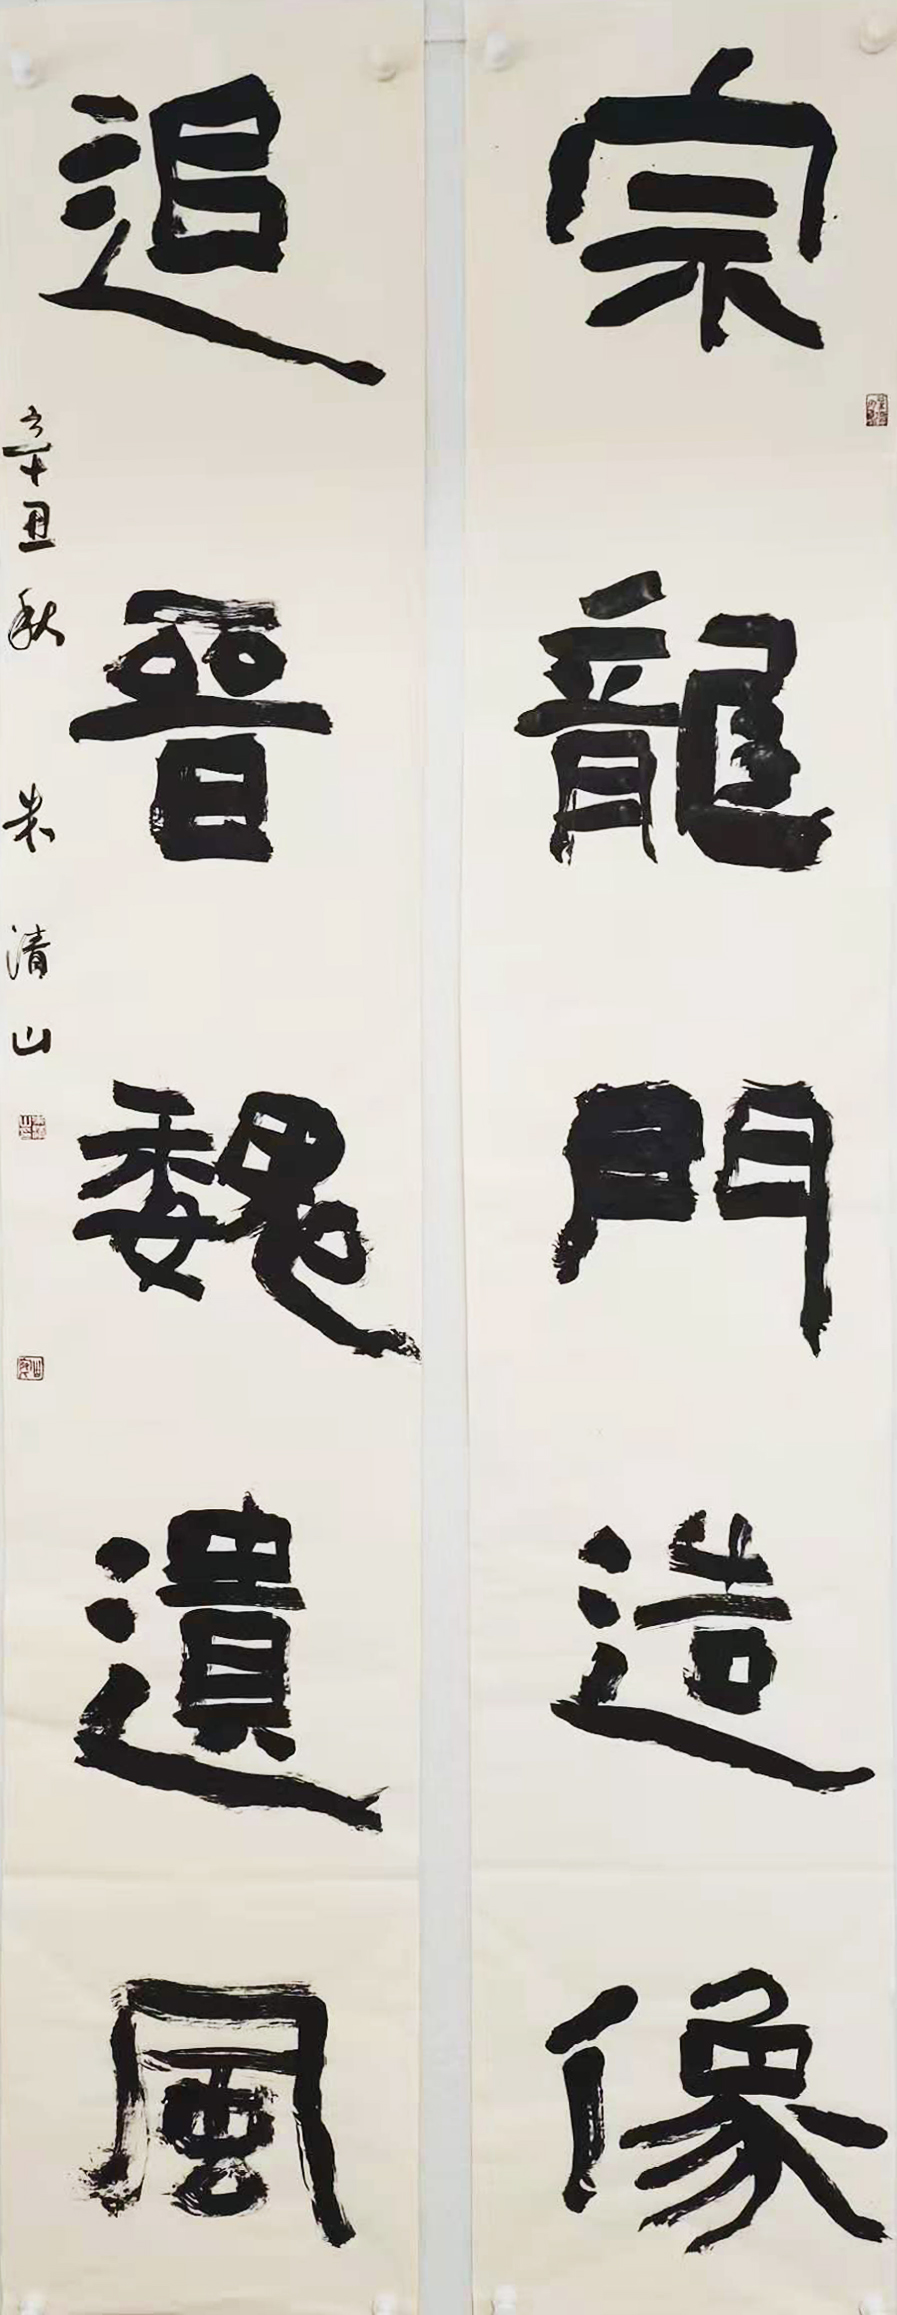 宗龍門造像
追晉魏遺風
辛丑秋 朱清山